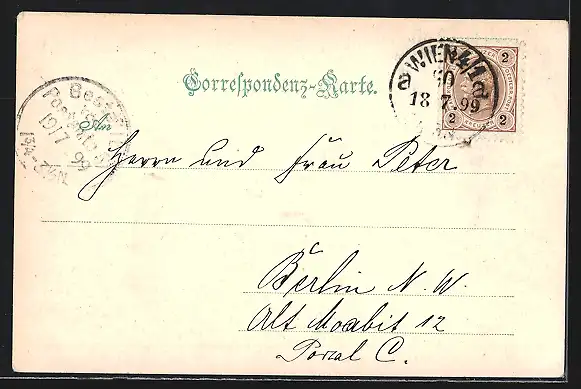 Correspondenz-Karte.
WIEN 4/1
18 7. 99
2
2 2
19/7 99
An
Herrn und Frau Peter
Berlin N. W.
Alt Moabit 12
Portal C.